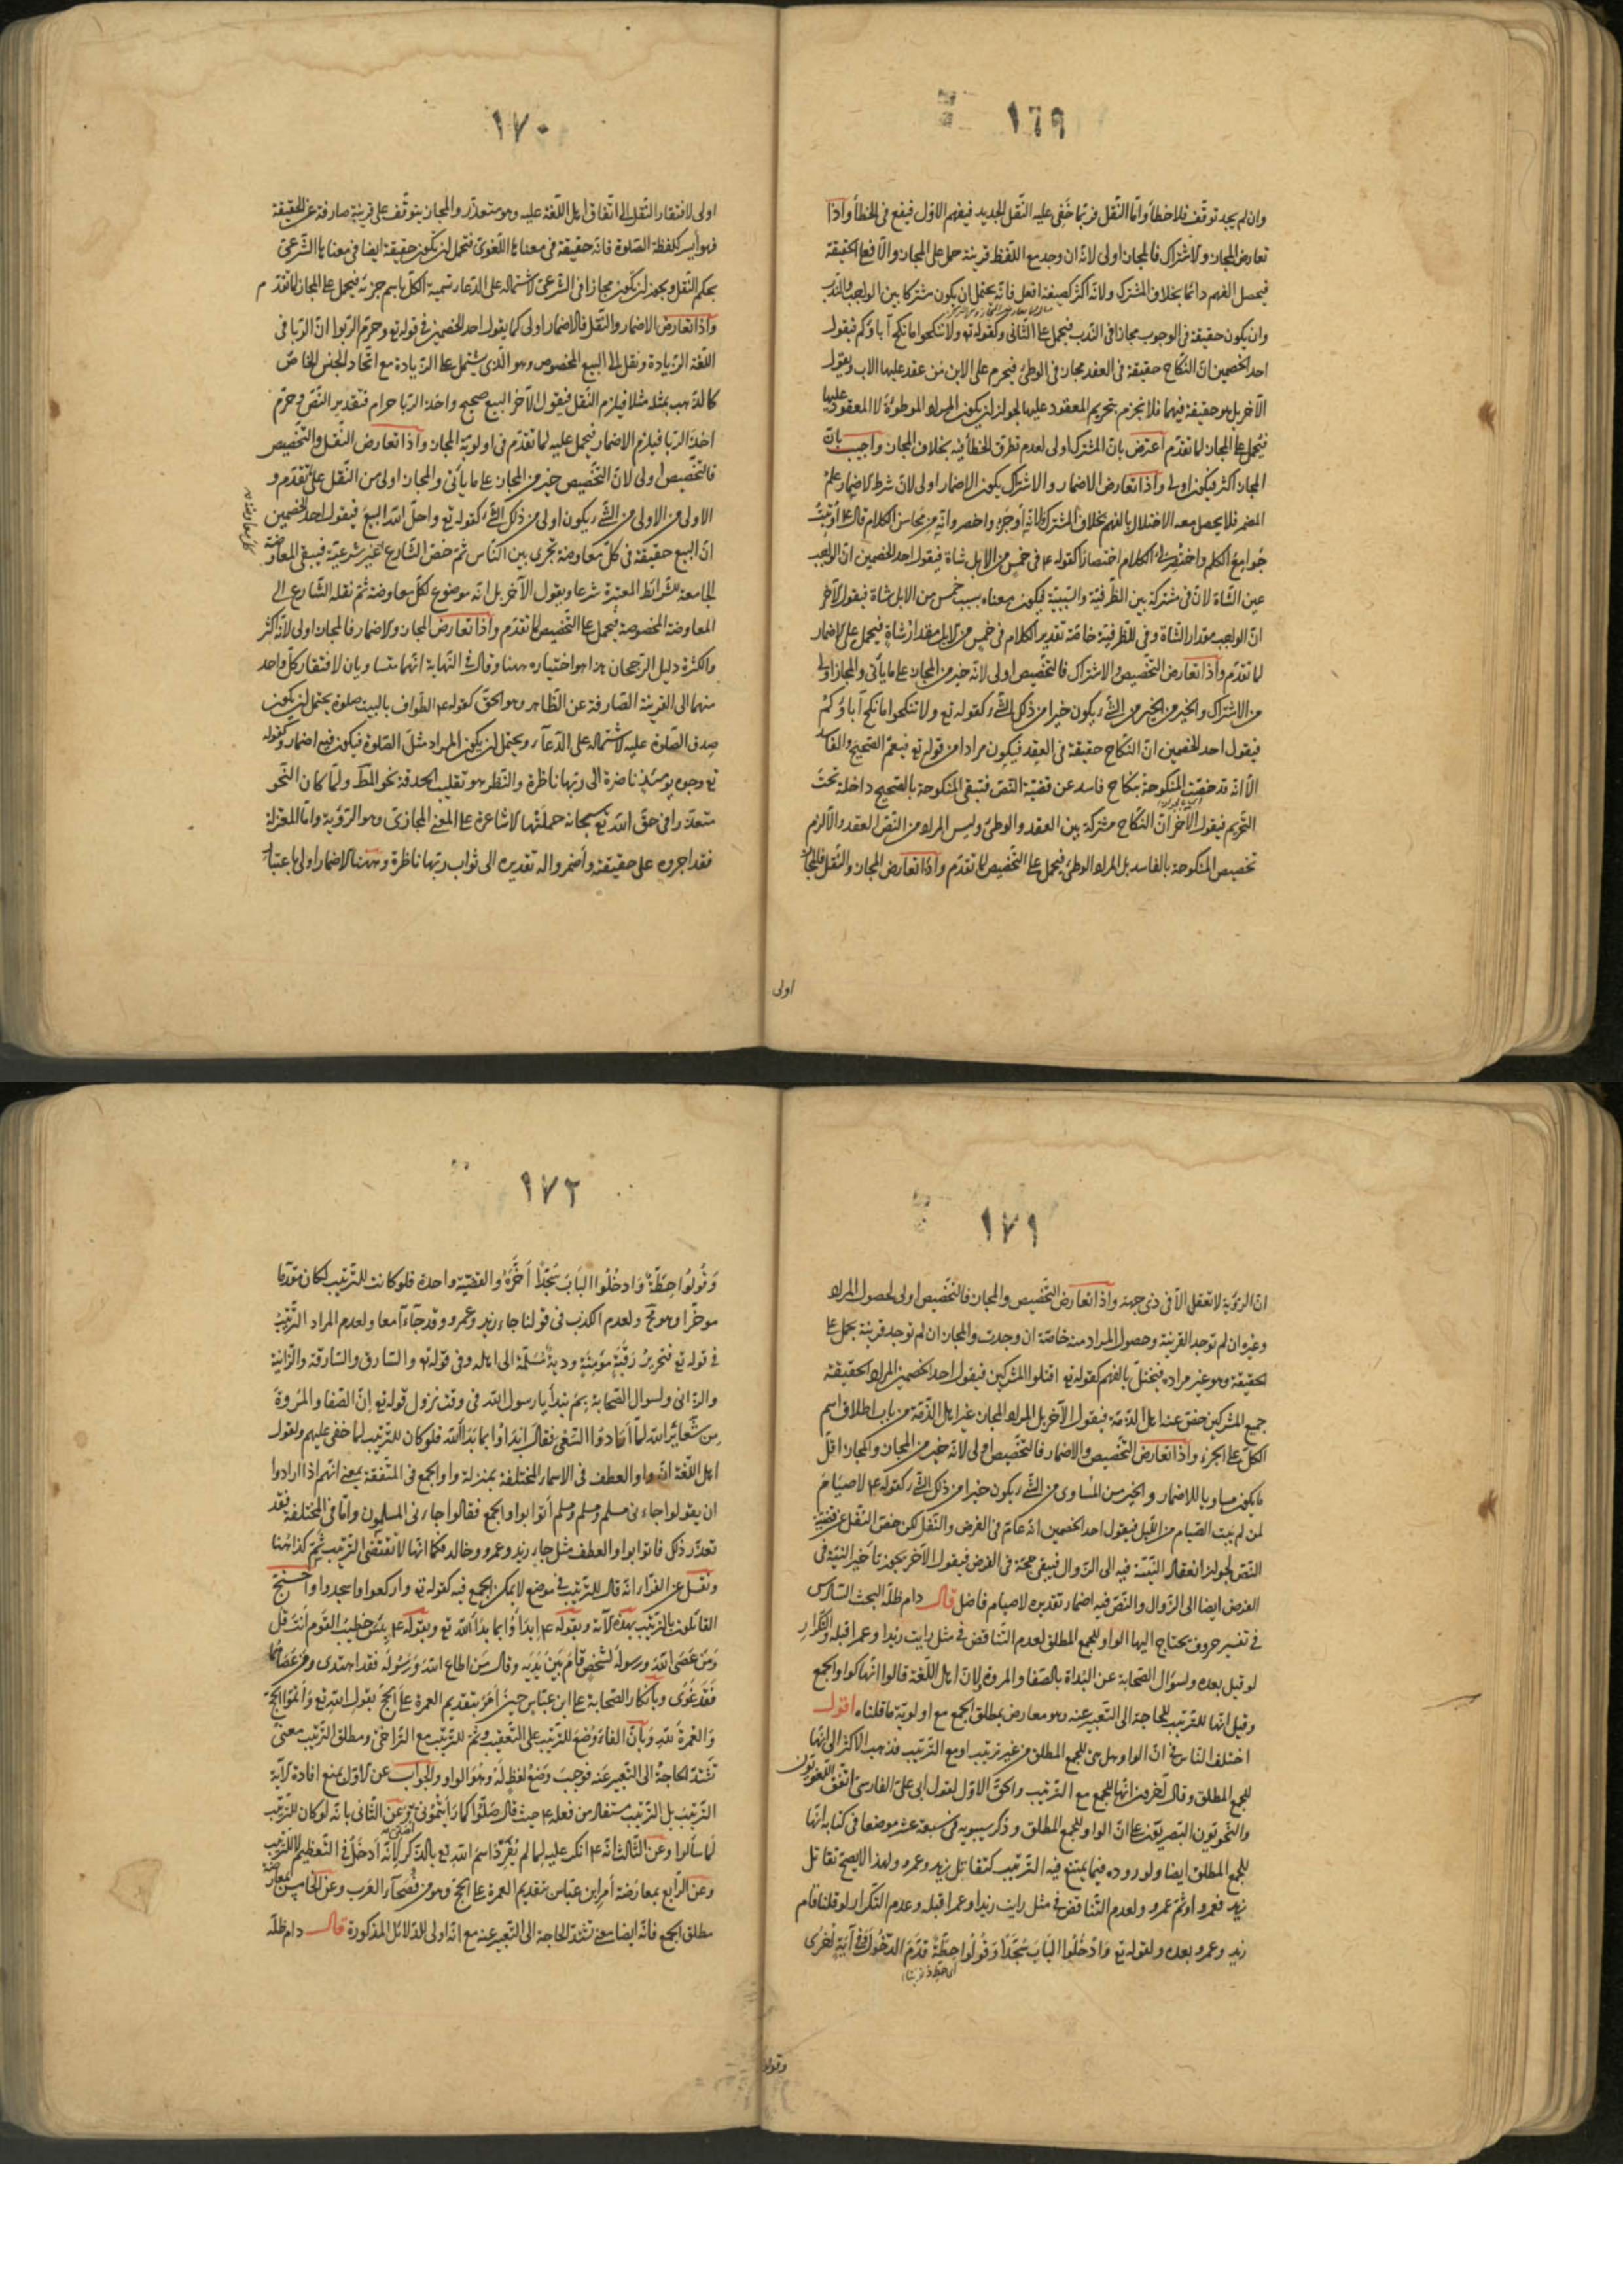 ١٦٩
وان لم يجد توقف فلا خطأ وامّا النّقل فربّما خفى عليه النّقل الجديد فيفهم الاوّل فيقع فى الخطأ واذا
تعارض المجاز والاشتراك فالمجاز اولى لانّه ان وجد مع اللّفظ قرينة حمل على المجاز والّا فعلى الحقيقة
فيحصل الفهم دائما بخلاف المشترك ولانّه اكثر كصيغة افعل فانّه يحتمل ان يكون مشتركا بين الواجب والندب
وان يكون حقيقة فى الوجوب مجازا فى النّدب فيحمل على الثّانى وكقوله تع ولا تنكحوا ما نكح آباؤكم فيقول
احد الخصمين انّ النّكاح حقيقة فى العقد مجاز فى الوطئ فيحرم على الابن من عقد عليها الاب ويقول
الآخر بل هو حقيقة فيهما فلا نجزم بتحريم المعقود عليها لجواز ان يكون المراد الموطوءة لا المعقود عليها
فيحمل على المجاز لما تقدّم اعترض بانّ المشترك اولى لعدم تطرق الخطأ فيه بخلاف المجاز واجيب بانّ
المجاز اكثر فيكون اولى واذا تعارض الاضمار والاشتراك يكون الاضمار اولى لانّ شرط الاضمار علم
المضمر فلا يحصل معه الاختلال بالفهم بخلاف المشترك ولانّه أوجز واخصر وانّه من محاسن الكلام قال ع أوتيتُ
جوامع الكلم واختصر لى الكلام اختصارا كقوله ع فى خمس من الابل شاة فيقول احد الخصمين انّ الواجب
عين الشّاة لانّ فى مشتركة بين الظّرفيّة والسّببيّة فيكون معناه بسبب خمس من الابل شاة فيقول الآخر
انّ الواجب مقدار الشّاة وفى للظّرفيّة خاصّة تقدير الكلام فى خمس من الابل مقدار شاةٍ فيحمل على الاضمار
لما تقدّم واذا تعارض التّخصيص والاشتراك فالتّخصيص اولى لانّه خير من المجاز على ما يأتى والمجاز اولى
من الاشتراك والخير من الخير من الشّىء يكون خيرا من ذلك الشّىء كقوله تع ولا تنكحوا ما نكح آباؤكم
فيقول احد الخصمين انّ النّكاح حقيقة فى العقد فيكون مرادا من قوله تع فيعمّ الصّحيح والفاسد
الّا انّه قد خصّت المنكوحة بنكاح فاسد عن قضيّة النّصّ فتبقى المنكوحة بالصّحيح داخلة تحت
التّحريم فيقول الآخر انّ النّكاح مشتركة بين العقد والوطئ وليس المراد من النّصّ العقد والّا لزم
تخصيص المنكوحة بالفاسد بل المراد الوطئ فيحمل على التّخصيص لما تقدّم واذا تعارض المجاز والنّقل فالمجاز
اولى
١٧٠
اولى لافتقار النّقل الى اتّفاق اهل اللّغة عليه وهو متعذّر والمجاز يتوقّف على قرينة صارفة عن الحقيقة
فهو أيسر كلفظة الصّلوة فانّه حقيقة فى معناها اللّغوىّ فتحمل لن تكون حقيقة ايضا فى معناها الشّرعىّ
بحكم النّقل ويجوز ان تكون مجازا فى الشّرعىّ لاشتماله على الدّعاء تسمية الكلّ باسم جزئه فيحمل على المجاز لما تقدّم
واذا تعارض الاضمار والنّقل فالاضمار اولى كما يقول احد الخصمين فى قوله تع وحرّم الرّبوا انّ الرّبا فى
اللّغة الزّيادة ونقل الى البيع المخصوص وهو الّذى يشتمل على الزّيادة مع اتّحاد الجنس الخاصّ
كالذّهب بمثله مثلا فيلزم النّقل فيقول الآخر البيع صحيح واخذ الرّبا حرام فتقدير النّصّ وحرّم
اخذ الرّبا فيلزم الاضمار فيحمل عليه لما تقدّم فى اولويّة المجاز واذا تعارض النّقل والتّخصيص
فالتّخصيص اولى لانّ التّخصيص خير من المجاز على ما يأتى والمجاز اولى من النّقل على ما تقدّم و
الاولى من الاولى من الشّىء يكون اولى من ذلك الشّىء كقوله تع واحلّ الله البيع فيقول احد الخصمين
انّ البيع حقيقة فى كلّ معاوضة تجرى بين النّاس ثمّ خصّ الشّارع غير شرعيّة فيبقى المعاوضة
الجامعة للشّرائط المعتبرة شرعا ويقول الآخر بل انّه موضوع لكلّ معاوضة ثمّ نقله الشّارع الى
المعاوضة المخصوصة فيحمل على التّخصيص لما تقدّم واذا تعارض المجاز والاضمار فالمجاز اولى لانّه اكثر
والكثرة دليل الرّجحان هذا هو اختياره ههنا وقال فى النّهاية انّهما متساويان لافتقار كلّ واحد
منهما الى القرينة الصّارفة عن الظّاهر وهو الحقّ كقوله ع الطّواف بالبيت صلوة يحتمل ان يكون
صدق الصّلوة عليه لاشتماله على الدّعاء ويحتمل ان يكون المراد مثل الصّلوة فيكون فيه اضمار وكقوله
تع وجوه يومئذ ناضرة الى ربّها ناظرة والنّظر هو تقليب الحدقة نحو المطلوب ولمّا كان النّحو
متعذّرا فى حقّ الله تع سبحانه حملتها الاشاعرة على المعنى المجازىّ وهو الرّؤية وامّا المعتزلة
فقد اجروه على حقيقته وأضمروا له تقديره الى ثواب ربّها ناظرة وههنا الاضمار اولى باعتبار
١٧١
انّ الرّؤية لا تعقل الّا فى ذى جهة واذا تعارض التّخصيص والمجاز فالتّخصيص اولى لحصول المراد
وغيره ان لم توجد القرينة وحصول المراد منه خاصّة ان وجدت والمجاز ان لم توجد قرينة يحمل على
الحقيقة وهو غير مراده فيختلّ بالفهم كقوله تع اقتلوا المشركين فيقول احد الخصمين المراد الحقيقة
جميع المشركين خصّ عنه اهل الذّمّة فيقول الآخر بل المراد المجاز غير اهل الذّمّة من باب اطلاق اسم
الكلّ على الجزء واذا تعارض التّخصيص والاضمار فالتّخصيص اولى لانّه خير من المجاز والمجاز اقلّ
ما يكون مساويا للاضمار والخير من المساوى من الشّىء يكون خيرا من ذلك الشّىء كقوله ع لا صيام
لمن لم يبت الصّيام من اللّيل فيقول احد الخصمين انّه عامّ فى الفرض والنّفل لكن خصّ النّفل عن قضيّة
النّصّ لجواز انعقاد النّيّة فيه الى الزّوال فيبقى حجّة فى الفرض فيقول الآخر يجوز تأخير النّيّة فى
الفرض ايضا الى الزّوال والنّصّ فيه اضمار تقديره لا صيام فاضل قال دام ظلّه البحث السّادس
فى تفسير حروف يحتاج اليها الواو للجمع المطلق لعدم التّناقض فى مثل رايت زيدا وعمرا قبله والتّكرار
لو قيل بعده ولسؤال الصّحابة عن البداة بالصّفا والمروة ولانّ اهل اللّغة قالوا انّها كواو الجمع
وقيل انّها للتّرتيب للحاجة الى التّعبير عنه وهو معارض بمطلق الجمع مع اولويّة ما قلناه اقول
اختلف النّاس فى انّ الواو هل هى للجمع المطلق من غير ترتيب او مع التّرتيب فذهب الاكثر الى انّها
للجمع المطلق وقال آخرون انّها للجمع مع التّرتيب والحقّ الاوّل لقول ابى علىّ الفارسىّ اتّفق اللّغويّون
والنّحويّون البصريّون على انّ الواو للجمع المطلق وذكر سيبويه فى سبعة عشر موضعا فى كتابه انّها
للجمع المطلق ايضا ولوروده فيما يمتنع فيه التّرتيب كتقاتل زيد وعمرو ولهذا لا يصحّ تقاتل
زيد فعمرو او ثمّ عمرو ولعدم التّناقض فى مثل رايت زيدا وعمرا قبله وعدم التّكرار لو قلنا قام
زيد وعمرو بعده ولقوله تع وَادْخُلُوا البَابَ سُجَّدًا وَقُولُوا حِطَّةٌ قدّم الدّخول فى آيةٍ أخرى
وقولوا
١٧٢
وَقُولُوا حِطَّةٌ وَادْخُلُوا البَابَ سُجَّدًا أَخَّرَهُ والقصّة واحدة فلو كانت للتّرتيب لكان مقدّما
مؤخّرا وهو مح ولعدم الكذب فى قولنا جاء زيد وعمرو وقد جاءا معا ولعدم المراد التّرتيب
فى قوله تع فتحرير رقبة مؤمنة ودية مسلّمة الى اهله وفى قوله تع والسّارق والسّارقة والزّانية
والزّانى ولسؤال الصّحابة بم نبدأ يا رسول الله فى وقت نزول قوله تع إنّ الصّفا والمروة
من شعائر الله لمّا أرادوا السّعى فقال ابدؤا بما بدأ الله فلو كان للتّرتيب لما خفى عليهم ولقول
اهل اللّغة انّ واو العطف فى الاسماء المختلفة بمنزلة واو الجمع فى المتّفقة بمعنى انّهم اذا ارادوا
ان يقولوا جاءنى مسلم ومسلم ومسلم أتوا بواو الجمع فقالوا جاءنى المسلمون وامّا فى المختلفة فقد
تعذّر ذلك فاتوا بواو العطف مثل جاء زيد وعمرو وخالد فكما انّها لا تقتضى التّرتيب ثمّ كذا هنا
ونقل عن الفرّاء انّه قال للتّرتيب فى موضع لا يمكن الجمع فيه كقوله تع واركعوا واسجدوا واحتجّ
القائلون بالتّرتيب بهذه الآية وبقوله ع ابدأوا بما بدأ الله تع وبقوله ع بئس خطيب القوم أنت قل
ومن عصى الله ورسوله لشخص قام بين يديه وقال من اطاع الله ورسوله فقد اهتدى ومن عصاهما
فقد غوى وبانكار الصّحابة على ابن عبّاس حين أمر بتقديم العمرة على الحجّ بقول الله تع وأتمّوا الحجّ
والعمرة لله وبأنّ الفاء وضع للتّرتيب على التّعقيب وثمّ للتّرتيب مع التّراخى ومطلق التّرتيب معنى
تشتدّ الحاجة الى التّعبير عنه فوجب وضع لفظ له وهو الواو والجواب عن الاوّل بمنع افادة الآية
التّرتيب بل التّرتيب مستفاد من فعله ع حيث قال صلّوا كما رأيتمونى وعن الثّانى بانّه لو كان للتّرتيب
لما سألوا وعن الثّالث انّه ع انكر عليه لما لم يفرد اسم الله تع بالذّكر لانّه أدخل فى التّعظيم لا للتّرتيب
وعن الرّابع بمعارضة أمر ابن عبّاس بتقديم العمرة على الحجّ وهو من فصحاء العرب وعن الخامس بمعارضة
مطلق الجمع فانّه ايضا معنى تشتدّ الحاجة الى التّعبير عنه مع انّه اولى للدّلائل المذكورة قال دام ظلّه